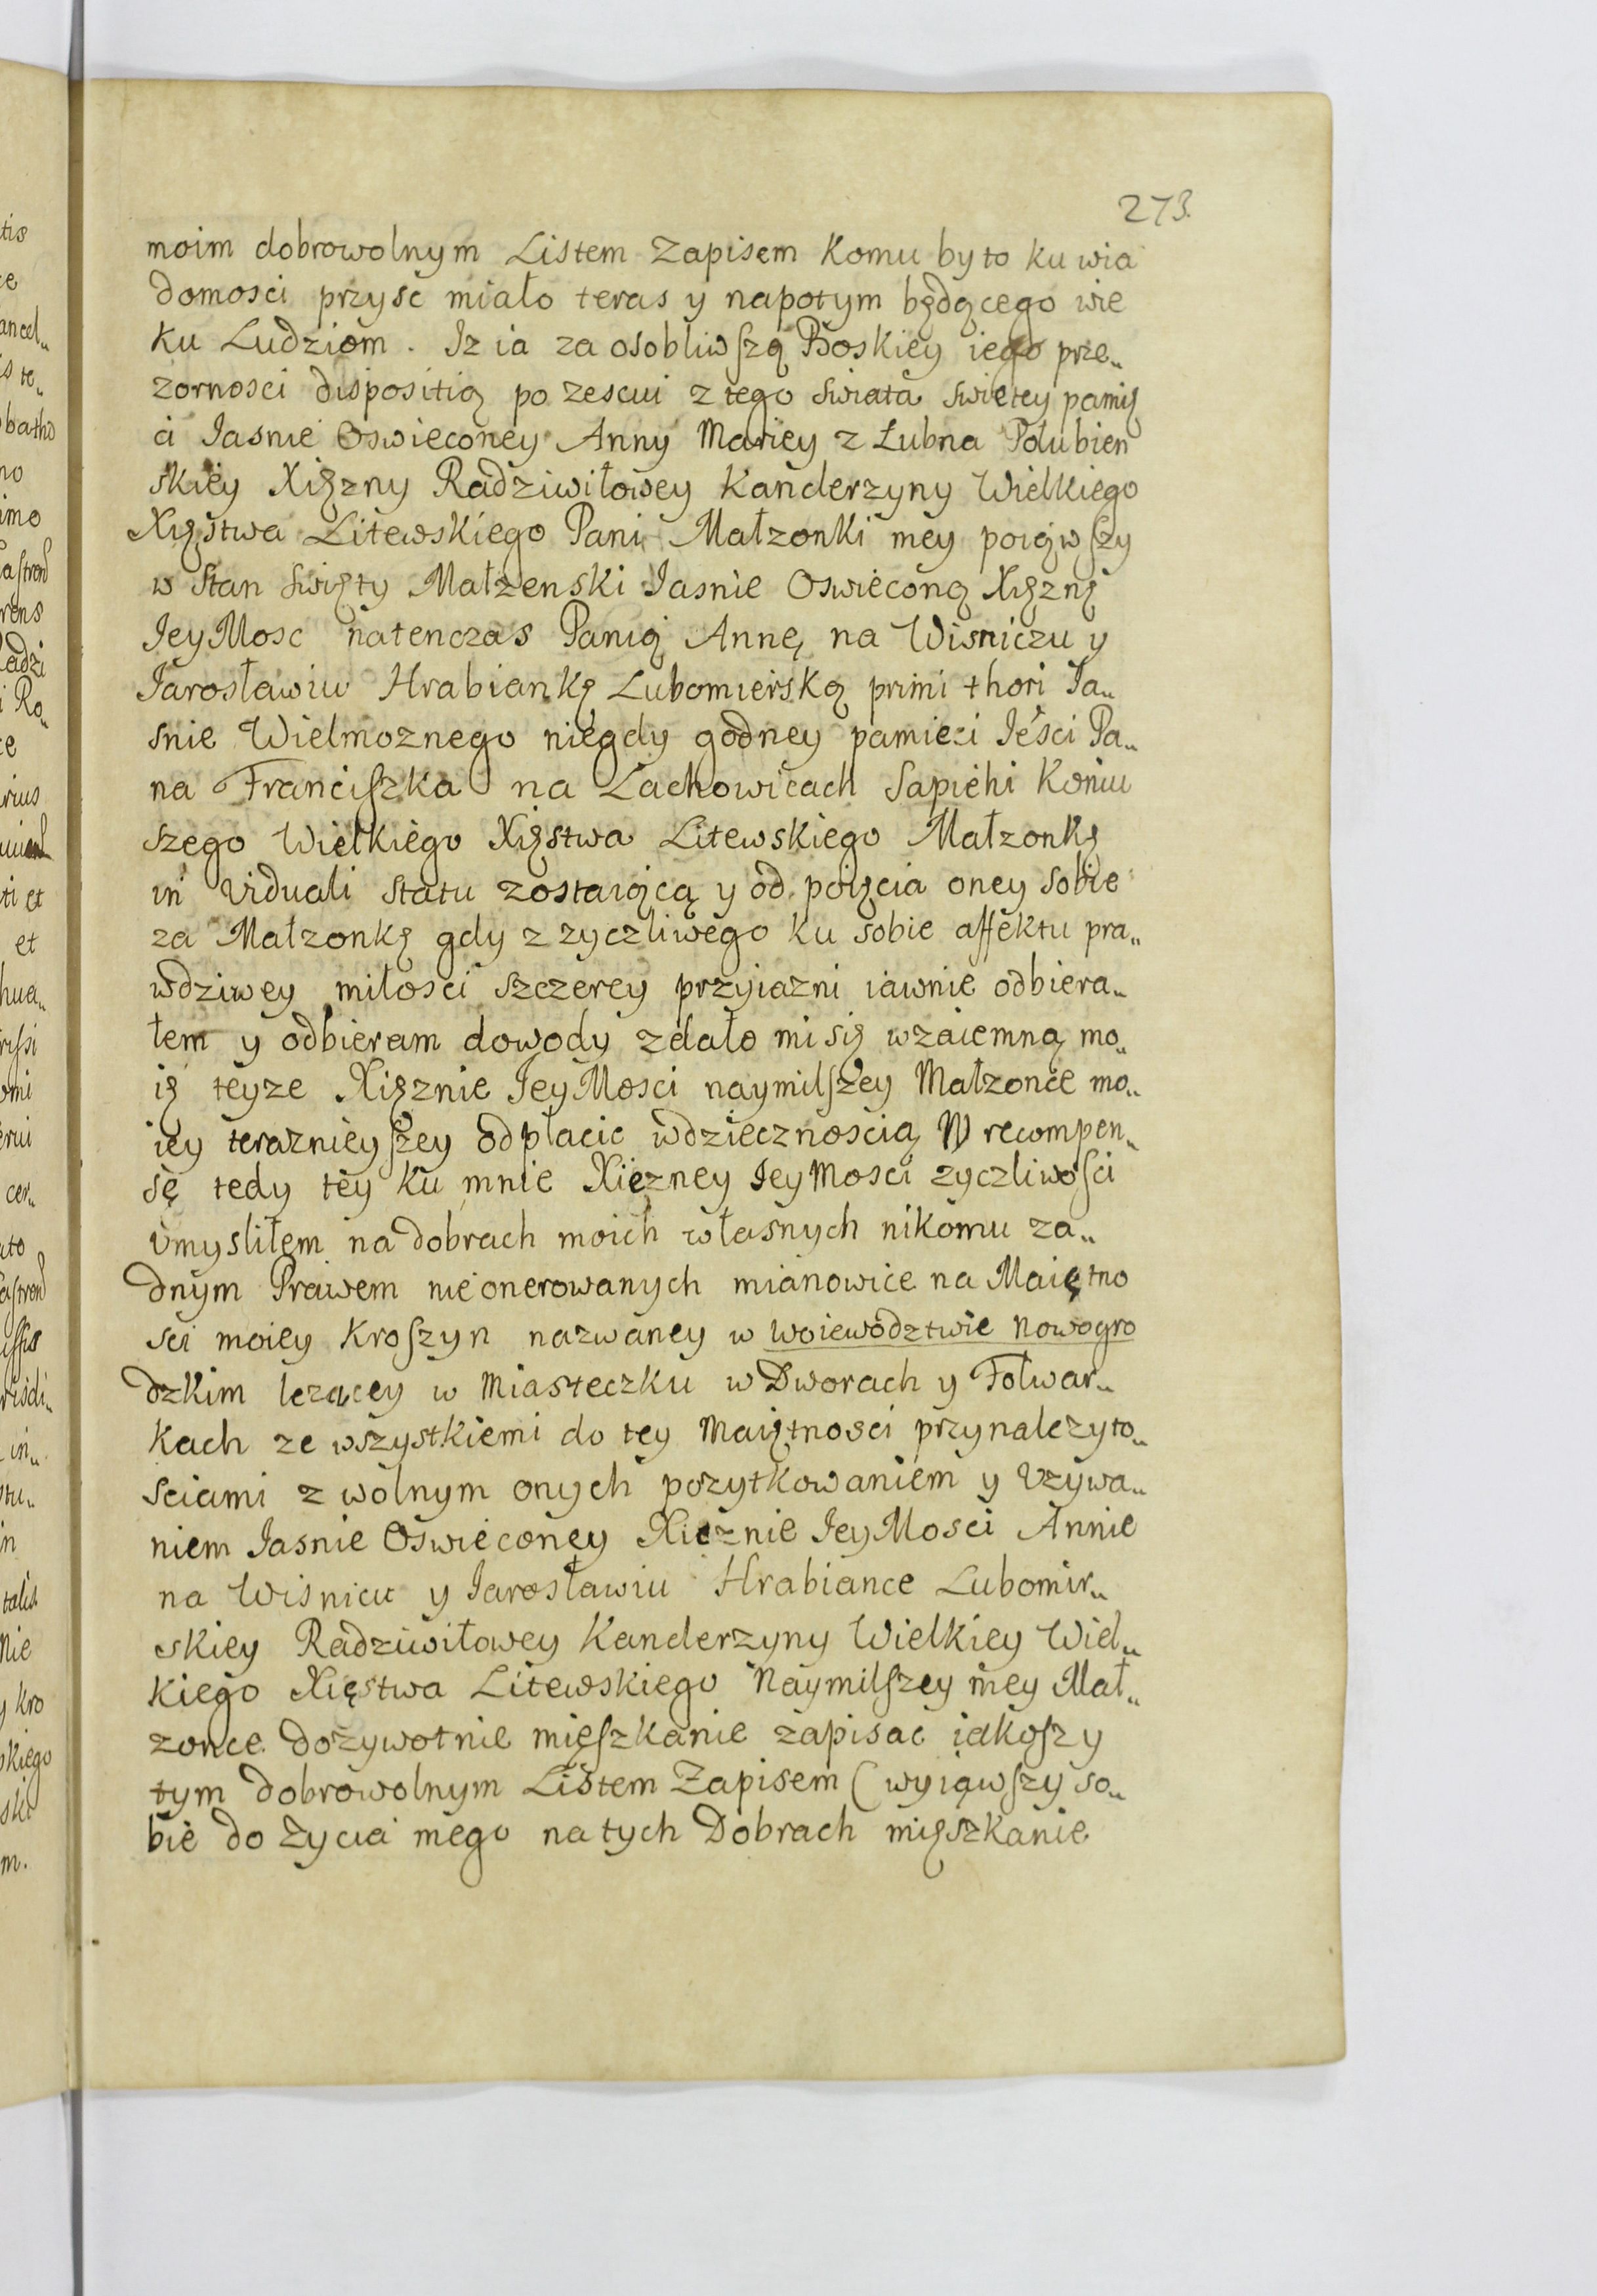 273.
moim dobrowolnym Listem Zapisem Komu by to ku wia
domosci przysc miało teras y napotym będącego wie
ku Ludziom. Iz ia za osobliwszą Boskiey iego prze„
zornosci dispositią po zesciu z tego swiata swietey pamię
ci Iasnie Oswieconey Anny Mariey z Łubna Połubien
skiey Xięzny Radziwiłowey Kanclerzyny Wielkiego
Xięstwa Litewskiego Pani Małzonki mey poiąwszy
w Stan swięty Małzenski Iasnie Oswieconą Xięznę
IeyMosc natenczas Panią Annę na Wisniczu y
Iarosławiu Hrabiankę Lubomierską primi thori Ia„
snie Wielmoznego niegdy godney pamieci Ieści Pa„
na Franciszka na Lachowicach Sapiehi Koniu
szego Wielkiego Xięstwa Litewskiego Małzonkę
in viduali statu zostaiącą y od poięcia oney sobie
za Małzonkę gdy z zyczliwego ku sobie affektu pra„
wdziwey miłosci szczerey przyiazni iawnie odbiera„
łem y odbieram dowody zdało mi się wzaiemną mo„
ię teyze Xięznie IeyMosci naymilszey Małzonce mo„
iey teraznieyszey odpłacic wdziecznoscią W recompen„
sę tedy tey ku mnie Xiezney IeyMosci zyczliwosci
vmysliłem na dobrach moich własnych nikomu za„
dnym Prawem nieonerowanych mianowice na Maiętno
sci moiey Kroszyn nazwaney w woiewodztwie Nowogro
dzkim lezącey w Miasteczku w Dworach y Folwar„
kach ze wszystkiemi do tey Maiętnosci przynalezyto„
sciami z wolnym onych pozytkowaniem y Vzywa„
niem Iasnie Oswieconey Xieznie IeyMosci Annie
na Wisnicu y Iarosławiu Hrabiance Lubomir„
skiey Radziwiłowey Kanclerzyny Wielkiey Wiel„
kiego Xięstwa Litewskiego Naymilszey mey Mał„
zonce dozywotnie mięszkanie zapisac iakosz y
tym dobrowolnym Listem Zapisem (wyiąwszy so„
bie do Zycia mego na tych Dobrach mięszkanie